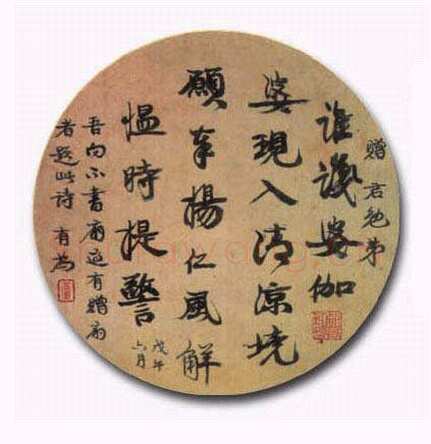 贈君勉弟
誰識婆伽
婆現入清涼境
願奉揚仁風解
愠時提警
戊午
六月
吾向不書扇有贈扇
者題此詩 有為